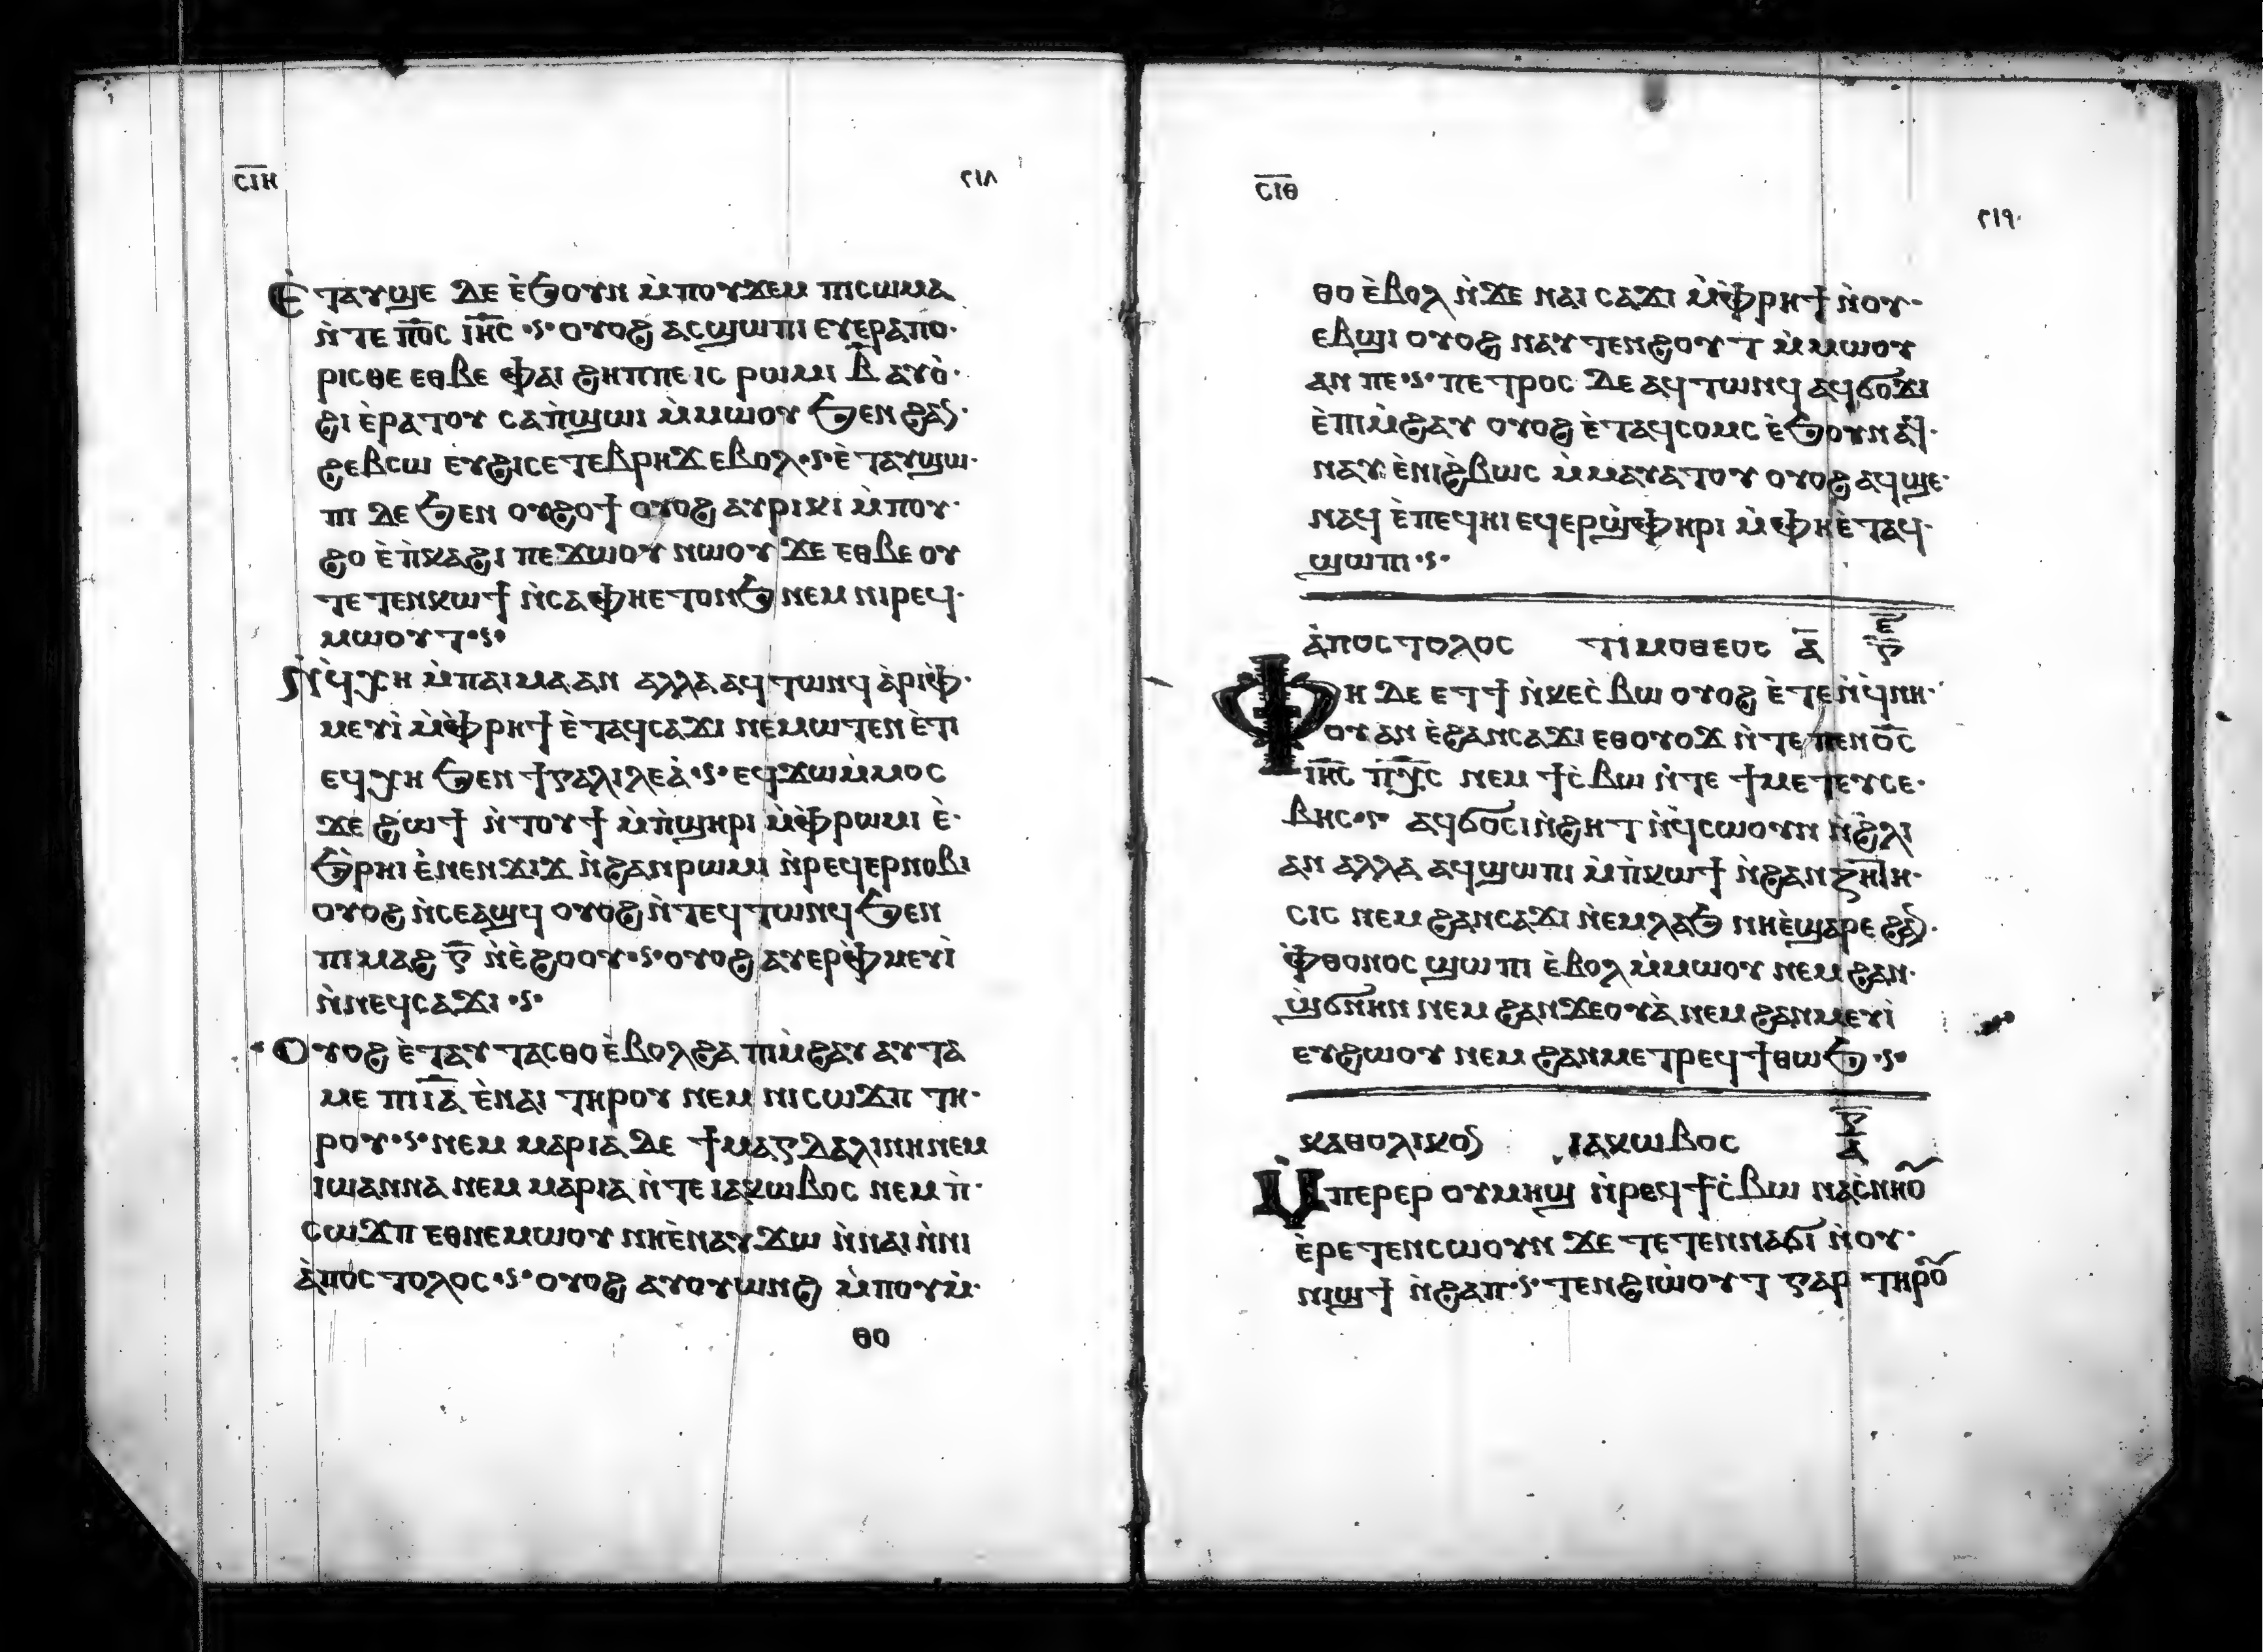 ⲥ̅ⲓ̅ⲏ̅ ٢١٨
Ⲉ̀ⲧⲁⲩϣⲉ ⲇⲉ ⲉ̀ϧⲟⲩⲛ ⲙ̀ⲡⲟⲩϫⲉⲙ ⲡⲓⲥⲱⲙⲁ
ⲛ̀ⲧⲉ ⲡ̅ⲟ̅ⲥ̅ ⲓ̅ⲏ̅ⲥ̅ ⲟⲩⲟϩ ⲁⲥϣⲱⲡⲓ ⲉⲩⲉⲣⲁⲡⲟ
ⲣⲓⲥⲑⲉ ⲉⲑⲃⲉ ⲫⲁⲓ ϩⲏⲡⲡⲉ ⲓⲥ ⲣⲱⲙⲓ ⲃ̅ ⲁⲩⲟ̀
ϩⲓ ⲉ̀ⲣⲁⲧⲟⲩ ⲥⲁⲡ̀ϣⲱⲓ ⲙ̀ⲙⲱⲟⲩ ϧⲉⲛ ϩⲁⲛ
ϩⲉⲃⲥⲱ ⲉⲩϩⲓⲥⲉⲧⲉⲃⲣⲏϫ ⲉⲃⲟⲗ ⲉ̀ⲧⲁⲩϣⲱ
ⲡⲓ ⲇⲉ ϧⲉⲛ ⲟⲩϩⲟϯ ⲟⲩⲟϩ ⲁⲩⲣⲓⲕⲓ ⲙ̀ⲡⲟⲩ
ϩⲟ ⲉ̀ⲡ̀ⲕⲁϩⲓ ⲡⲉϫⲱⲟⲩ ⲛⲱⲟⲩ ϫⲉ ⲉⲑⲃⲉ ⲟⲩ
ⲧⲉⲧⲉⲛⲕⲱϯ ⲛ̀ⲥⲁ ⲫⲏⲉⲧⲟⲛϧ ⲛⲉⲙ ⲛⲓⲣⲉϥ
ⲙⲱⲟⲩⲧ
Ⲛ̀ϥ̀ⲭⲏ ⲙ̀ⲡⲁⲓⲙⲁ ⲁⲛ ⲁⲗⲗⲁ ⲁϥⲧⲱⲛϥ ⲁ̀ⲣⲓⲫ̀
ⲙⲉⲩⲓ̀ ⲙ̀ⲫ̀ⲣⲏϯ ⲉ̀ⲧⲁϥⲥⲁϫⲓ ⲛⲉⲙⲱⲧⲉⲛ ⲉ̀ⲧⲓ
ⲉϥⲭⲏ ϧⲉⲛ ϯⲅⲁⲗⲓⲗⲉⲁ̀ ⲉϥϫⲱ ⲙ̀ⲙⲟⲥ
ϫⲉ ϩⲱϯ ⲛ̀ⲧⲟⲩϯ ⲙ̀ⲡ̀ϣⲏⲣⲓ ⲙ̀ⲫ̀ⲣⲱⲙⲓ ⲉ̀
ϧ̀ⲣⲏⲓ ⲉ̀ⲛⲉⲛϫⲓϫ ⲛ̀ϩⲁⲛⲣⲱⲙⲓ ⲛ̀ⲣⲉϥⲉⲣⲛⲟⲃⲓ
ⲟⲩⲟϩ ⲛ̀ⲥⲉⲁϣϥ ⲟⲩⲟϩ ⲛ̀ⲧⲉϥⲧⲱⲛϥ ϧⲉⲛ
ⲡⲓⲙⲁϩ ⲅ̅ ⲛ̀ⲉ̀ϩⲟⲟⲩ ⲟⲩⲟϩ ⲁⲩⲉⲣⲫ̀ⲙⲉⲩⲓ̀
ⲛ̀ⲛⲉϥⲥⲁϫⲓ
Ⲟⲩⲟϩ ⲉ̀ⲧⲁⲩⲧⲁⲥⲑⲟ ⲉ̀ⲃⲟⲗϩⲁ ⲡⲓⲙ̀ϩⲁⲩ ⲁⲩⲧⲁ
ⲙⲉ ⲡⲓⲓ̅ⲁ̅ ⲉ̀ⲛⲁⲓ ⲧⲏⲣⲟⲩ ⲛⲉⲙ ⲛⲓⲥⲱϫⲡ ⲧⲏ
ⲣⲟⲩ ⲛⲉⲙ ⲙⲁⲣⲓⲁ ⲇⲉ ϯⲙⲁⲅⲇⲁⲗⲓⲛⲏ ⲛⲉⲙ
ⲓⲱⲁⲛⲛⲁ ⲛⲉⲙ ⲙⲁⲣⲓⲁ ⲛ̀ⲧⲉ ⲓⲁⲕⲱⲃⲟⲥ ⲛⲉⲙ ⲡ̀
ⲥⲱϫⲡ ⲉⲑⲛⲉⲙⲱⲟⲩ ⲛⲏⲉ̀ⲛⲁⲩϫⲱ ⲛ̀ⲛⲁⲓ ⲛ̀ⲛⲓ
ⲁ̀ⲡⲟⲥⲧⲟⲗⲟⲥ ⲟⲩⲟϩ ⲁⲩⲟⲩⲱⲛϩ ⲙ̀ⲡⲟⲩⲙ̀
ⲑⲟ
ⲥ̅ⲓ̅ⲑ̅ ٢١٩
ⲑⲟ ⲉ̀ⲃⲟⲗ ⲛ̀ϫⲉ ⲛⲁⲓ ⲥⲁϫⲓ ⲙ̀ⲫ̀ⲣⲏϯ ⲛ̀ⲟⲩ
ⲉⲃϣⲓ ⲟⲩⲟϩ ⲛⲁⲩⲧⲉⲛϩⲟⲩⲧ ⲙ̀ⲙⲱⲟⲩ
ⲁⲛ ⲡⲉ ⲡⲉⲧⲣⲟⲥ ⲇⲉ ⲁϥⲧⲱⲛϥ ⲁϥϭⲟϫⲓ
ⲉ̀ⲡⲓⲙ̀ϩⲁⲩ ⲟⲩⲟϩ ⲉ̀ⲧⲁϥⲥⲟⲙⲥ ⲉ̀ϧⲟⲩⲛ ⲁϥ
ⲛⲁⲩ ⲉ̀ⲛⲓϩ̀ⲃⲱⲥ ⲙ̀ⲙⲁⲩⲁⲧⲟⲩ ⲟⲩⲟϩ ⲁϥϣⲉ
ⲛⲁϥ ⲉ̀ⲡⲉϥⲏⲓ ⲉϥⲉⲣϣ̀ⲫⲏⲣⲓ ⲙ̀ⲫⲏⲉ̀ⲧⲁϥ
ϣⲱⲡⲓ
ⲁ̀ⲡⲟⲥⲧⲟⲗⲟⲥ ⲧⲓⲙⲟⲑⲉⲟⲥ ⲁ̅ ⲉ̅ ⲅ̅
Ⲫⲏ ⲇⲉ ⲉⲧϯ ⲛ̀ⲕⲉⲥ̀ⲃⲱ ⲟⲩⲟϩ ⲉ̀ⲧⲉⲛ̀ϥ̀ⲛⲏ
ⲟⲩ ⲁⲛ ⲉ̀ϩⲁⲛⲥⲁϫⲓ ⲉⲑⲟⲩⲟϫ ⲛ̀ⲧⲉ ⲡⲉⲛⲟ̅ⲥ̅
ⲓ̅ⲏ̅ⲥ̅ ⲡ̅ⲭ̅ⲥ̅ ⲛⲉⲙ ϯⲥ̀ⲃⲱ ⲛ̀ⲧⲉ ϯⲙⲉⲧⲉⲩⲥⲉ
ⲃⲏⲥ ⲁϥϭⲟⲥⲓ ⲛ̀ϩⲏⲧ ⲛ̀ϥ̀ⲥⲱⲟⲩⲛ ⲛ̀ϩ̀ⲗⲓ
ⲁⲛ ⲁⲗⲗⲁ ⲁϥϣⲱⲡⲓ ⲙ̀ⲡ̀ⲕⲱϯ ⲛ̀ϩⲁⲛ ⲍⲏⲧⲏ
ⲥⲓⲥ ⲛⲉⲙ ϩⲁⲛⲥⲁϫⲓ ⲛ̀ⲉⲙⲗⲁϧ ⲛⲏⲉ̀ϣⲁⲣⲉ ϩⲁⲛ
ⲫ̀ⲑⲟⲛⲟⲥ ϣⲱⲡⲓ ⲉ̀ⲃⲟⲗ ⲙ̀ⲙⲱⲟⲩ ⲛⲉⲙ ϩⲁⲛ
ϣ̀ϭⲛⲏⲛ ⲛⲉⲙ ϩⲁⲛϫⲉⲟⲩⲁ̀ ⲛⲉⲙ ϩⲁⲛⲙⲉⲩⲓ̀
ⲉⲩϩⲱⲟⲩ ⲛⲉⲙ ϩⲁⲛⲙⲉⲧⲣⲉϥϯⲑⲱϧ
ⲕⲁⲑⲟⲗⲓⲕⲟⲛ ⲓⲁⲕⲱⲃⲟⲥ ⲅ̅ ⲁ̅
Ⲙ̀ⲡⲉⲣⲉⲣ ⲟⲩⲙⲏϣ ⲛ̀ⲣⲉϥϯⲥ̀ⲃⲱ ⲛⲁⲥ̀ⲛⲏⲟⲩ
ⲉ̀ⲣⲉⲧⲉⲛⲥⲱⲟⲩⲛ ϫⲉ ⲧⲉⲧⲉⲛⲛⲁϭⲓ ⲛ̀ⲟⲩ
ⲛⲓϣϯ ⲛ̀ϩⲁⲡ ⲧⲉⲛϩⲓⲱ̀ⲟⲩⲧ ⲅⲁⲣ ⲧⲏⲣⲟⲩ